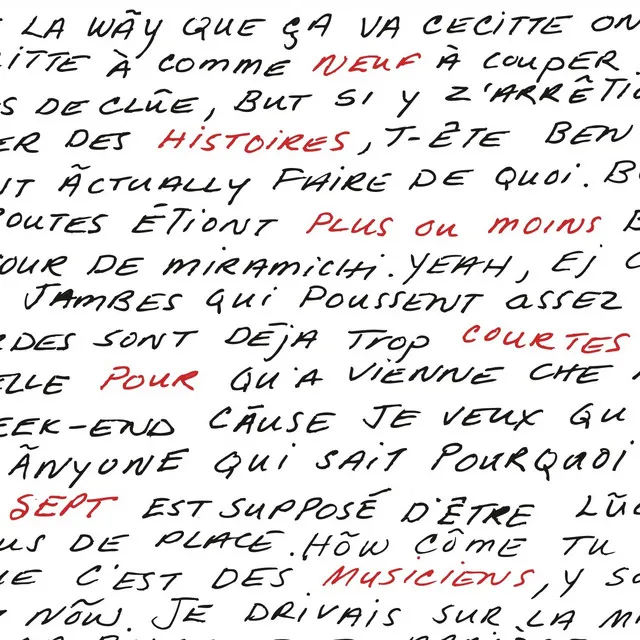 LA WÃY QUE ÇA VA CECITTE ON
ITTE À COMME NEUF À COUPER
S DE CLÛE, BUT SI Y Z'ARRÊTIO
ER DES HISTOIRES, T-ÊTE BEN
NT ÃCTUALLY FAIRE DE QUOI. B
OUTES ÉTIONT PLUS OU MOINS
OUR DE MIRAMICHI. YEAH, EJ
JAMBES QUI POUSSENT ASSEZ
RDES SONT DÉJA TROP COURTES
ELLE POUR QU'A VIENNE CHE
EEK-END CÃUSE JE VEUX QU
ÃNYONE QUI SAIT POURQUOI
SEPT EST SUPPOSÉ D'ÊTRE LÛ
US DE PLACE. HÕW CÔME TU
UE C'EST DES MUSICIENS, Y S
NÕW. JE DRIVAIS SUR LA M